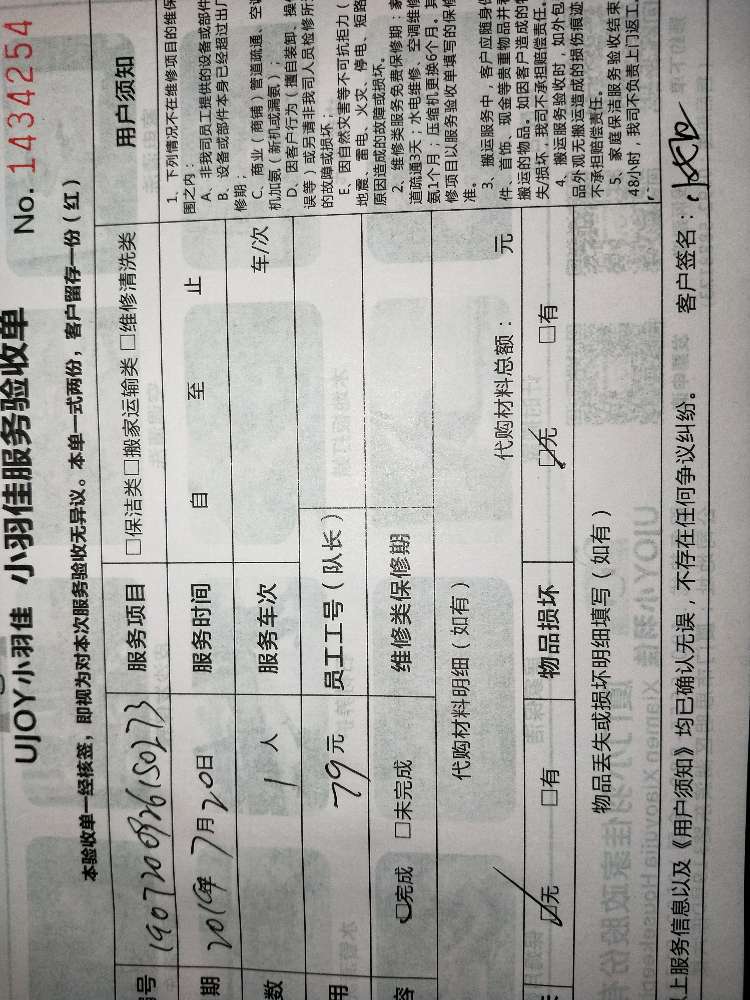 UJOY小羽佳 小羽佳服务验收单 No. 1434254
本验收单一经核签，即视为对本次服务验收无异议。本单一式两份，客户留存一份（红）
号 1907200926150273 服务项目 □保洁类□搬家运输类□维修清洗类 用户须知
期 2019年7月20日 服务时间 自 至 止
数 1人 服务车次 车/次
用 79元 员工工号（队长）
容 ☑完成 □未完成 维修类保修期
代购材料明细（如有） 代购材料总额： 元
☑无 □有 物品损坏 ☑无 □有
物品丢失或损坏明细填写（如有）
1、下列情况不在维修项目的维保
围之内：
A、非我司员工提供的设备或部件
B、设备或部件本身已经超过出厂
修期；
C、商业（商铺）管道疏通、空调
机加氨（新机或满氨）；
D、因客户行为（擅自装卸、操
误等）或另请非我司人员检修所
的故障或损坏；
E、因自然灾害等不可抗拒力（
地震、雷电、火灾、停电、短路
原因造成的故障或损坏。
2、维修类服务免费保修期：家
道疏通3天；水电维修、空调维修
氨1个月；压缩机更换6个月。其
修项目以服务验收单填写的保修
准。
3、搬运服务中，客户应随身
件、首饰、现金等贵重物品并
搬运的物品。如因客户造成的
失/损坏，我司不承担赔偿责任。
4、搬运服务验收时，如外包
品外观无搬运造成的损伤痕迹
不承担赔偿责任。
5、家庭保洁服务验收结束
48小时，我司不负责上门返工
上服务信息以及《用户须知》均已确认无误，不存在任何争议纠纷。 客户签名：